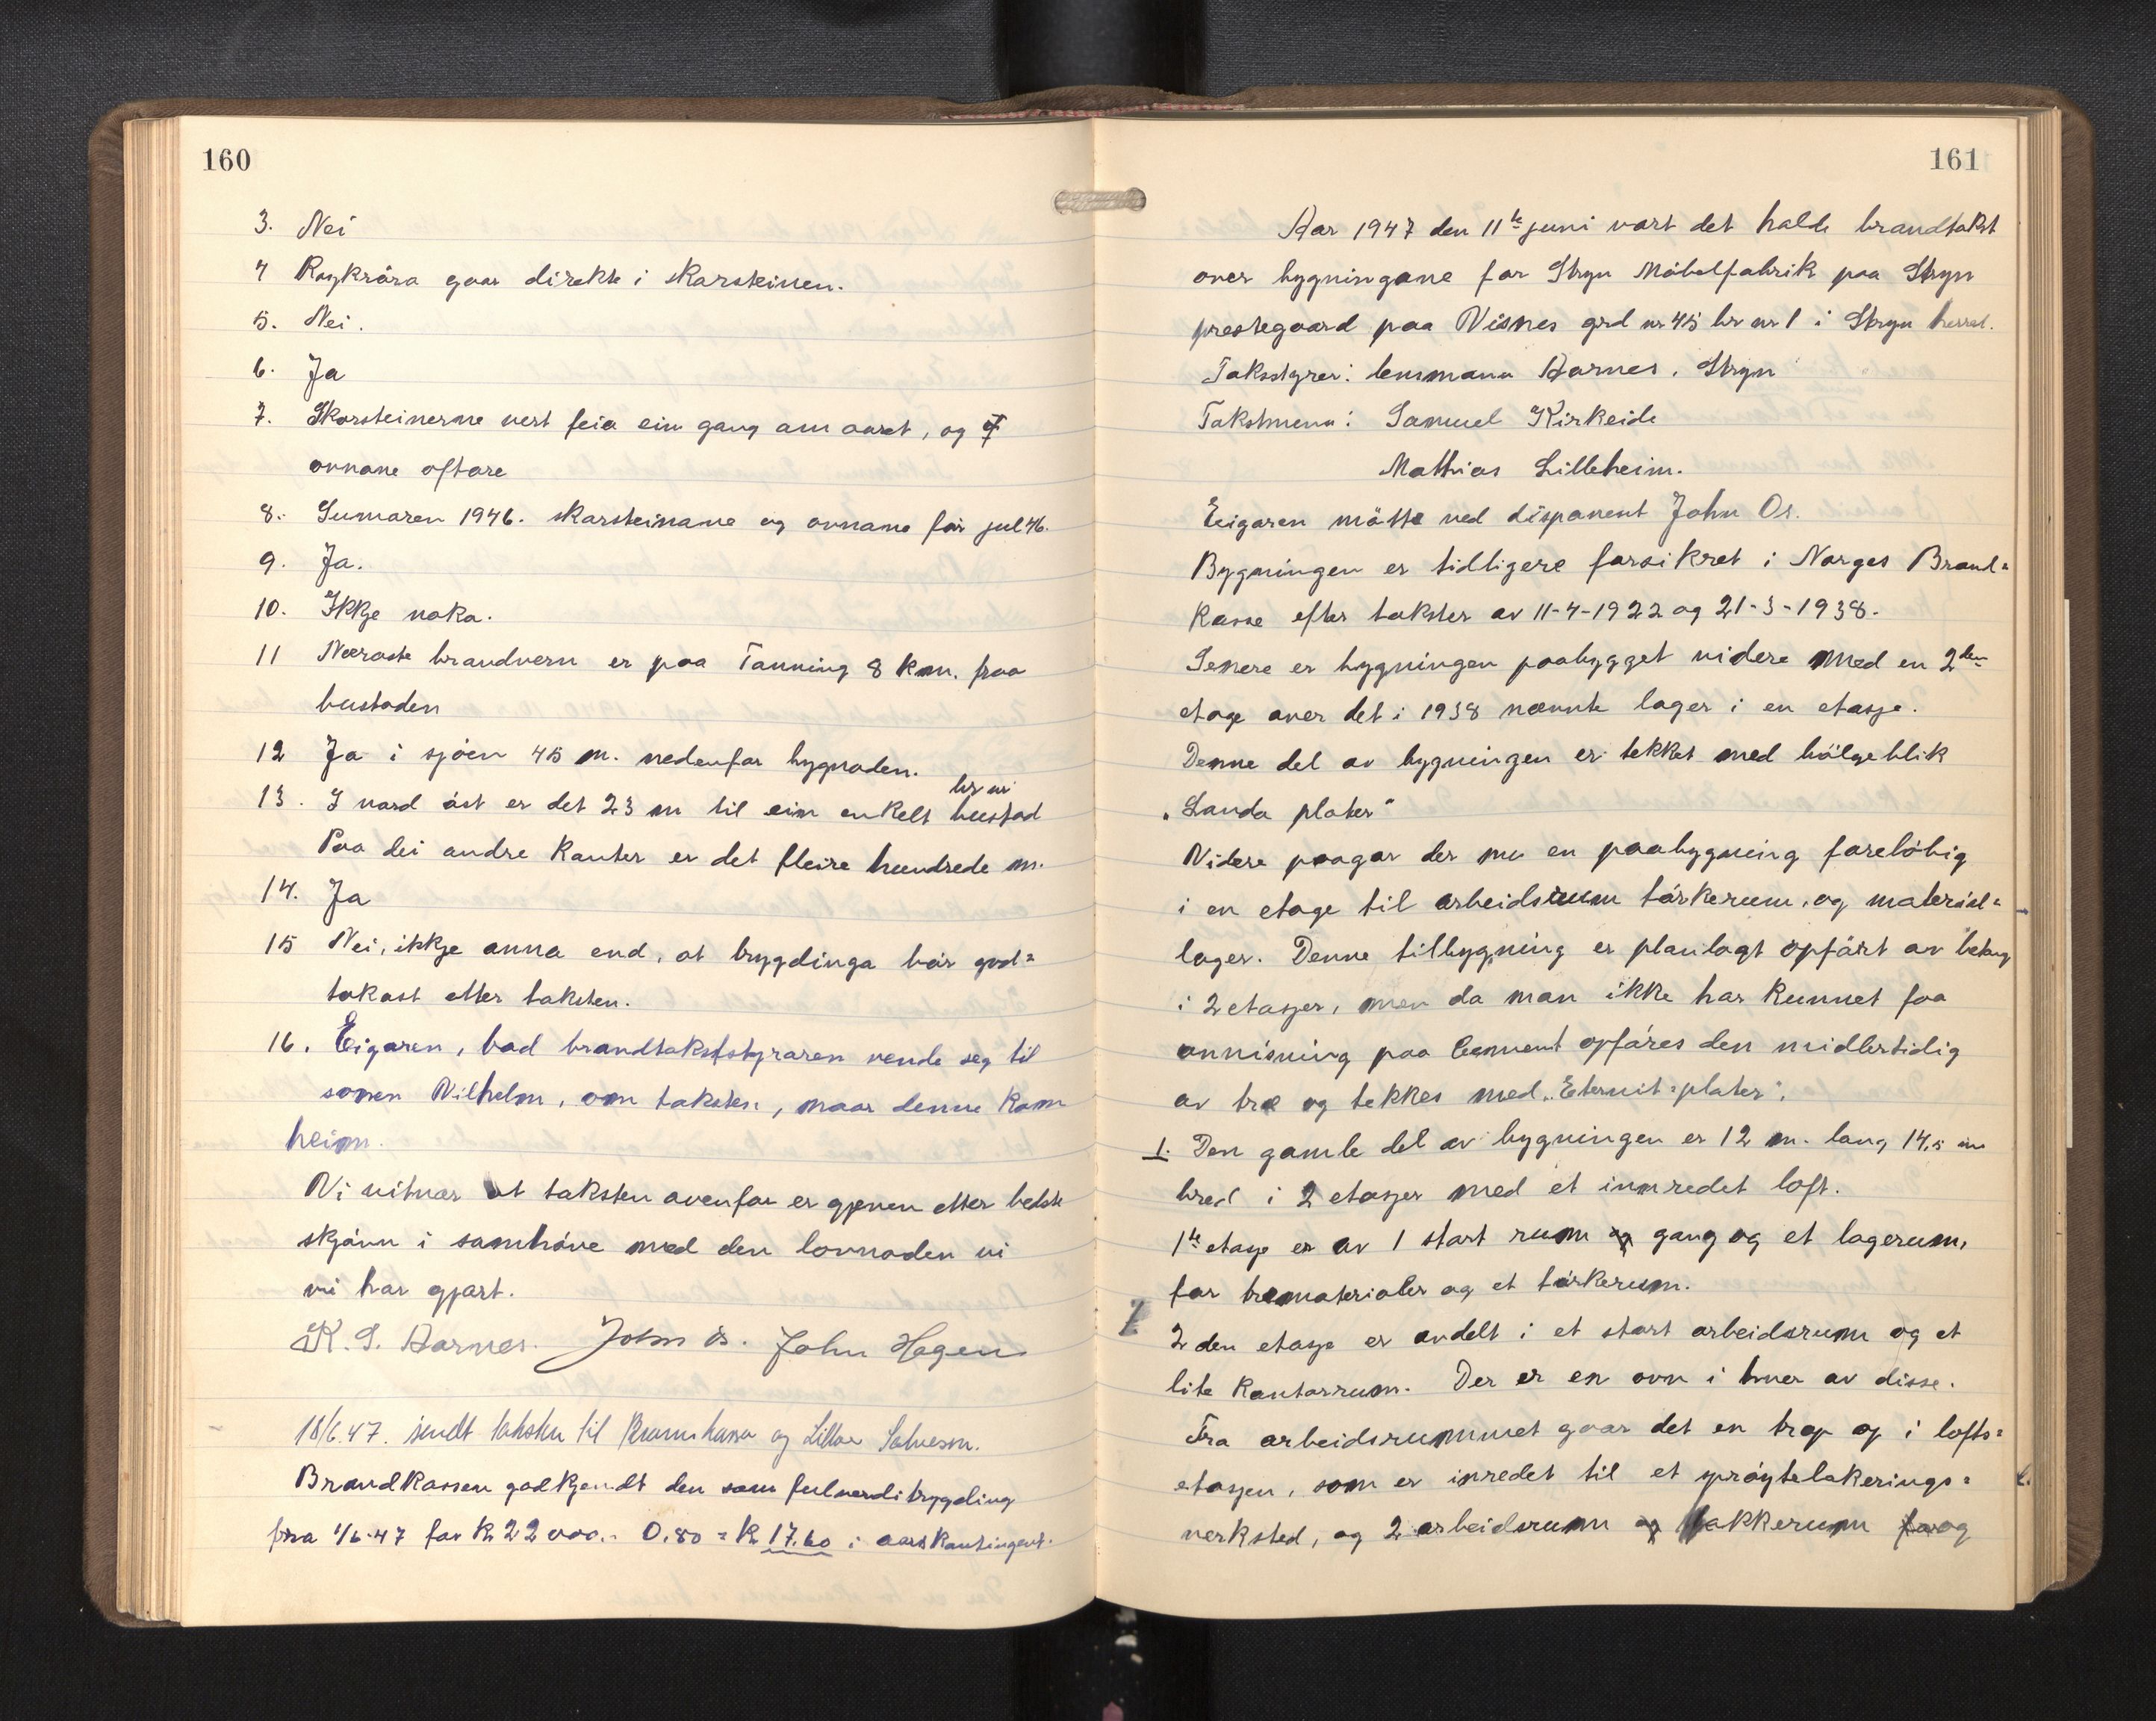 160
3. Nei
4 Røykröra gaar direkte i skorsteinen.
5. Nei.
6. Ja
7. Skorsteinerne vert feia ein gang um aaret, og
ovnane oftare
8. Sumaren 1946. skorsteinane og ovnane för jul 46.
9. Ja.
10. Ikkje noko.
11 Næraste brandvern er paa Tonning 8 km. fraa
bustaden
12 Ja i sjöen 45 m. nedenfor bygnaden.
13. I nord öst er det 23 m til ein enkelt bustad
br nr
Paa dei andre kanter er det fleire hundrede m.
14. Ja
15 Nei, ikkje anna end, at trygdinga bör god=
takast etter taksten.
16. Eigaren, bad brandtakststyraren vende seg til
sonen Vilhelm, om taksten, naar denne kom
heim.
Vi vitnar at taksten ovenfor er gjeven etter bedste
skjönn i samhöve med den lovnaden vi
vi har gjort.
K. S. Aarnes. John Øs. John Hagen
18/6.47. sendt taksten til Brannkassa og
Brandkassen godkjendt den som fulverditrygding
fra 1/6-47 for kr 22 000.- 0.80 = kr 17.60 i aarskontingent.
161
Aar 1947 den 11te juni vart det halde brandtakst
over bygningane for Stryn Möbelfabrik paa Stryn
prestegaard paa Visnes grd nr 45 br nr 1 i Stryn herred.
Takststyrer: lensmann Aarnes, Stryn
Takstmenn: Samuel Kirkeide
Mathias Lilleheim.
Eeigaren mötte ved disponent John Os.
Bygningen er tidligere forsikret i Norges Brand=
kasse efter takster av 11-4-1922 og 21-3-1938.
Senere er bygningen paabygget videre med en 2den
etage over det i 1938 nævnte lager i en etasje.
Denne del av bygningen er tekket med bölgeblik
"Landa plater"
Videre paagar der nu en paabygning foreløbig
i en etage til arbeidsrum törkerum, og material=
lager. Denne tilbygning er planlagt opfört av betong
i 2 etasjer, men da man ikke har kunnet faa
anvisning paa Cement opföres den midlertidig
av træ og tekkes med "Eternit=plater".
1. Den gamle del av bygningen er 12 m. lang 14,5 m
bred i 2 etasjer med et innredet loft.
1te etasje er av 1 stort rum og gang og et lagerum,
for træmaterialer og et törkerum.
2 den etasje er avdelt i et stort arbeidsrum og et
lite kontorrum. Der er en ovn i hver av disse.
Fra arbeidsrummet gaar det en trap op i lofts=
etasjen, som er inredet til et spröytelakerings=
verksted, og 2 arbeidsrum og lakkerum for og